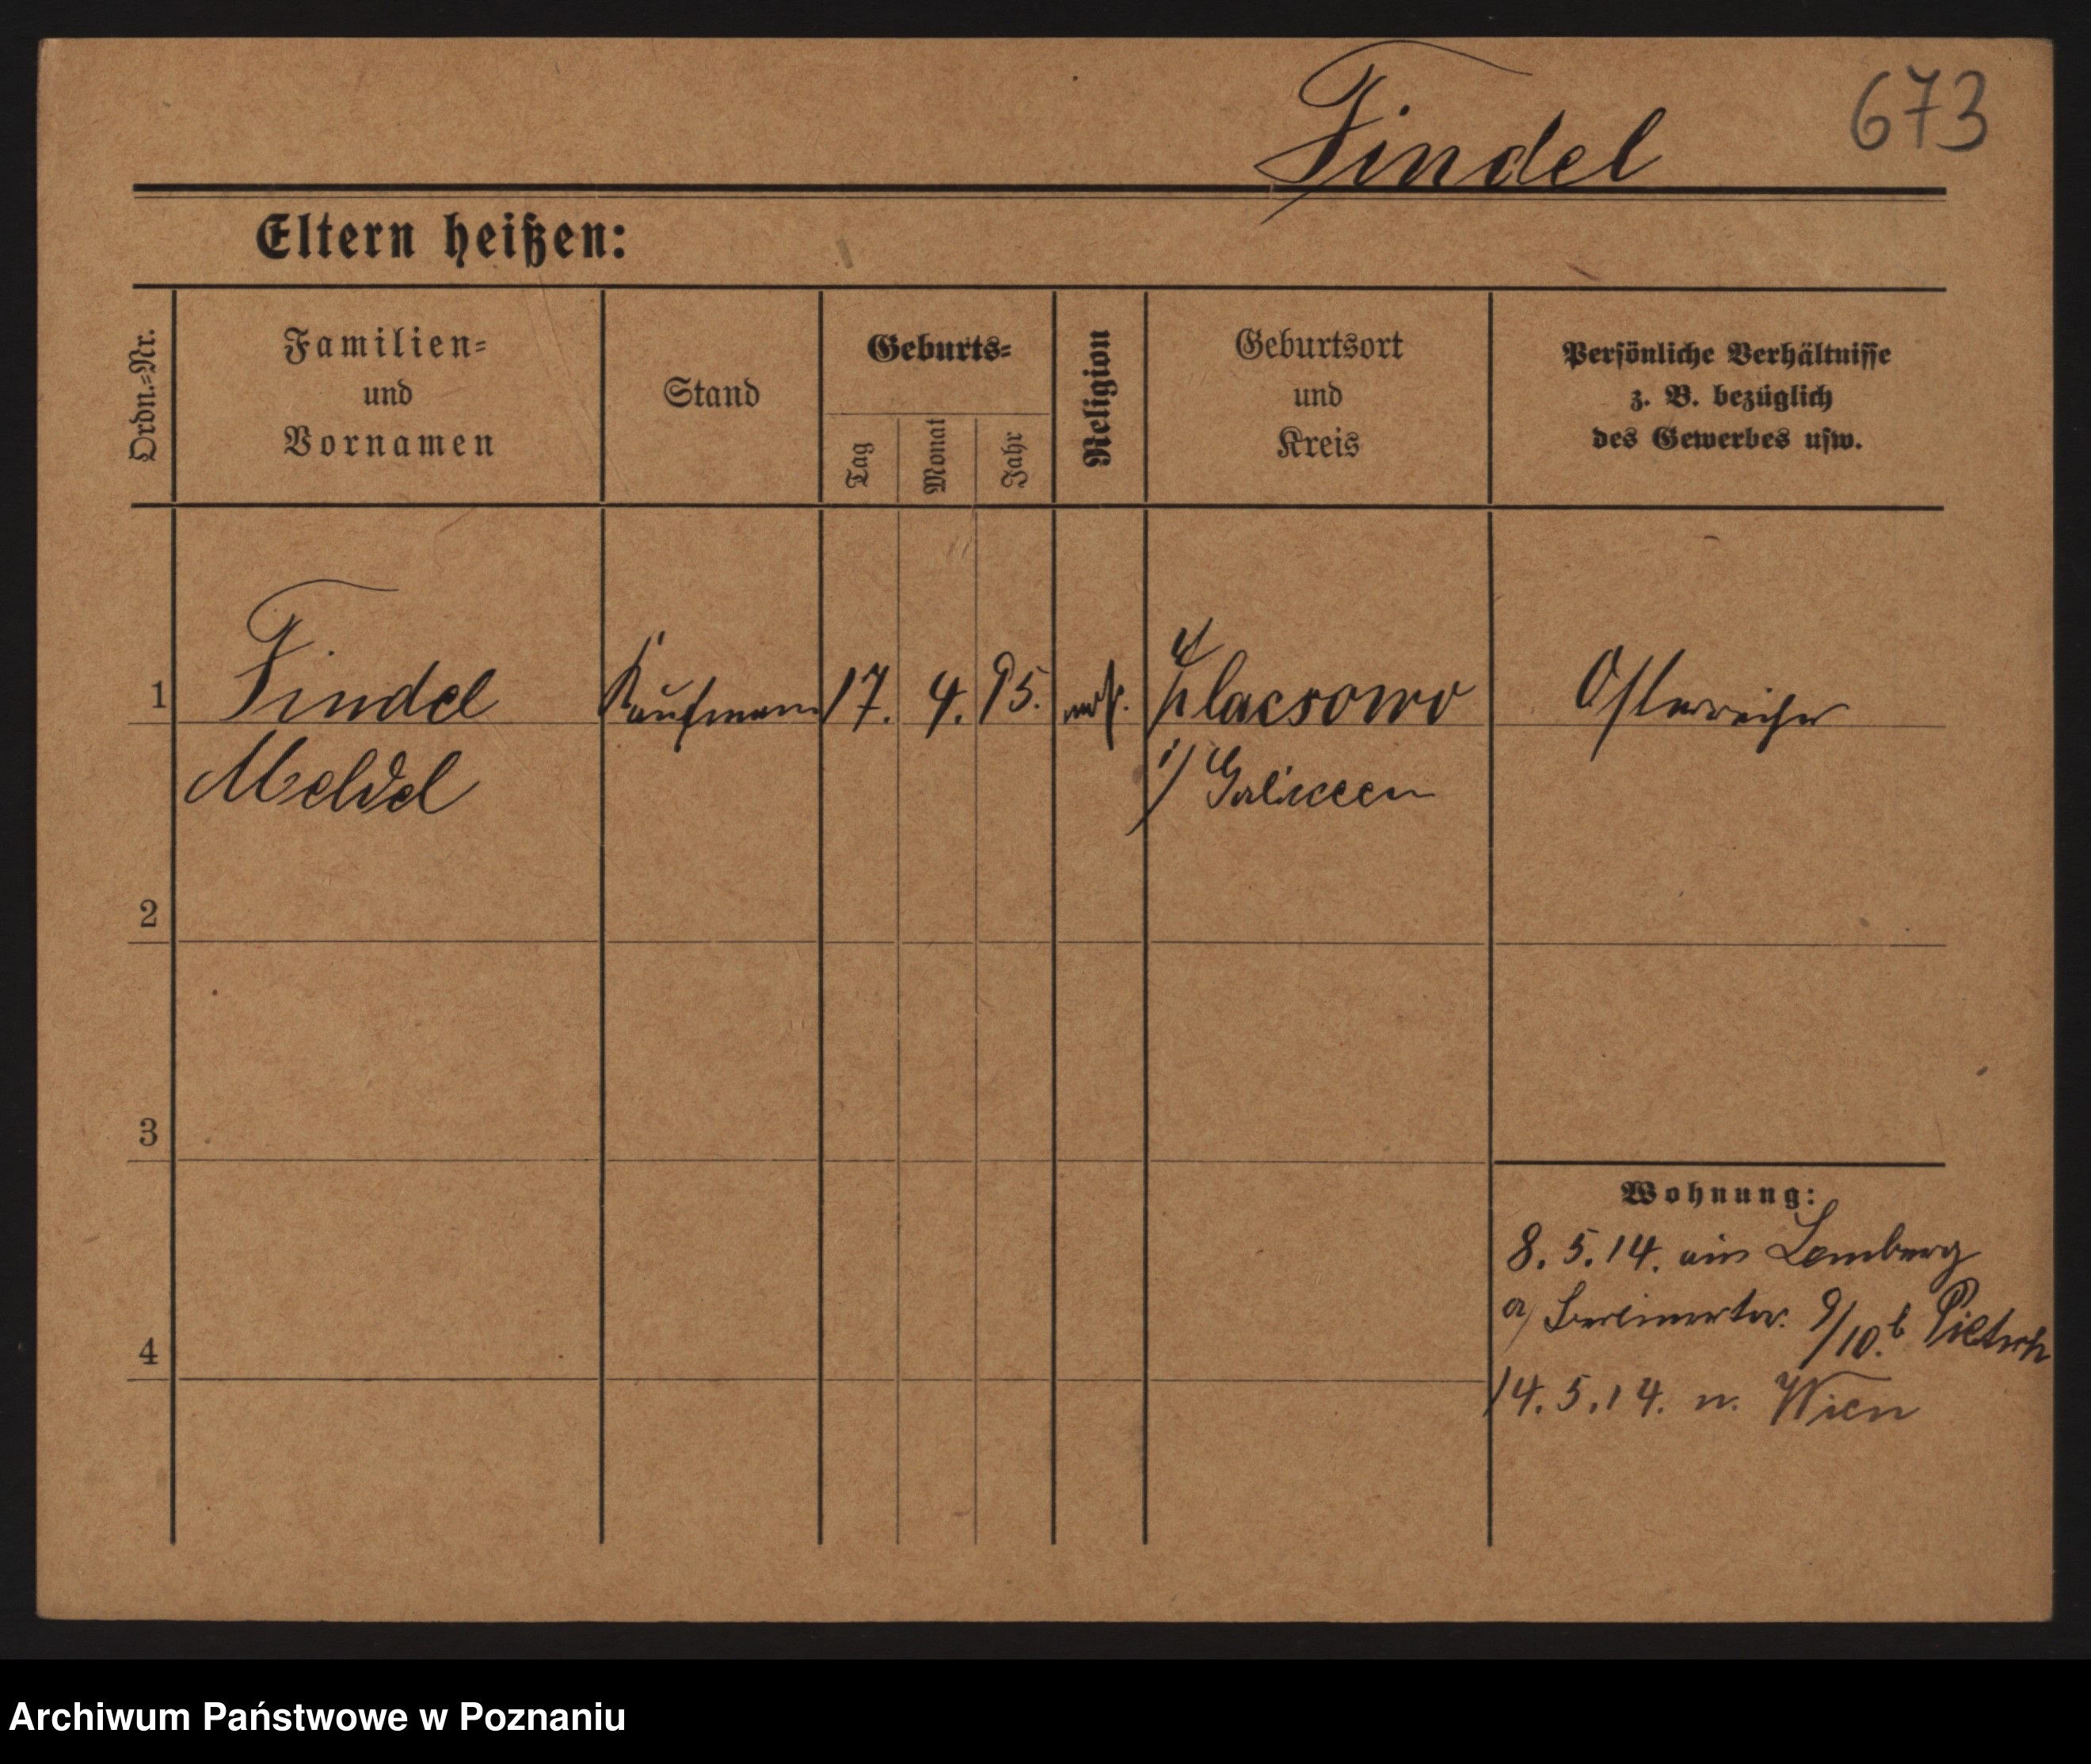 673
Findel
Eltern heißen:
Ordn.-Nr.
Familien-
und
Vornamen
Stand
Geburts-
Tag
Monat
Jahr
Religion
Geburtsort
und
Kreis
Persönliche Verhältnisse
z. B. bezüglich
des Gewerbes usw.
1 Findel Kaufmann 17. 4. 95. Österreicher
Meldel i/ Galicien
2
3
Wohnung:
8. 5. 14. aus Lemberg
a/ Berlinerstr. 9/10. b
4
14. 5. 14. n. Wien
Archiwum Państwowe w Poznaniu